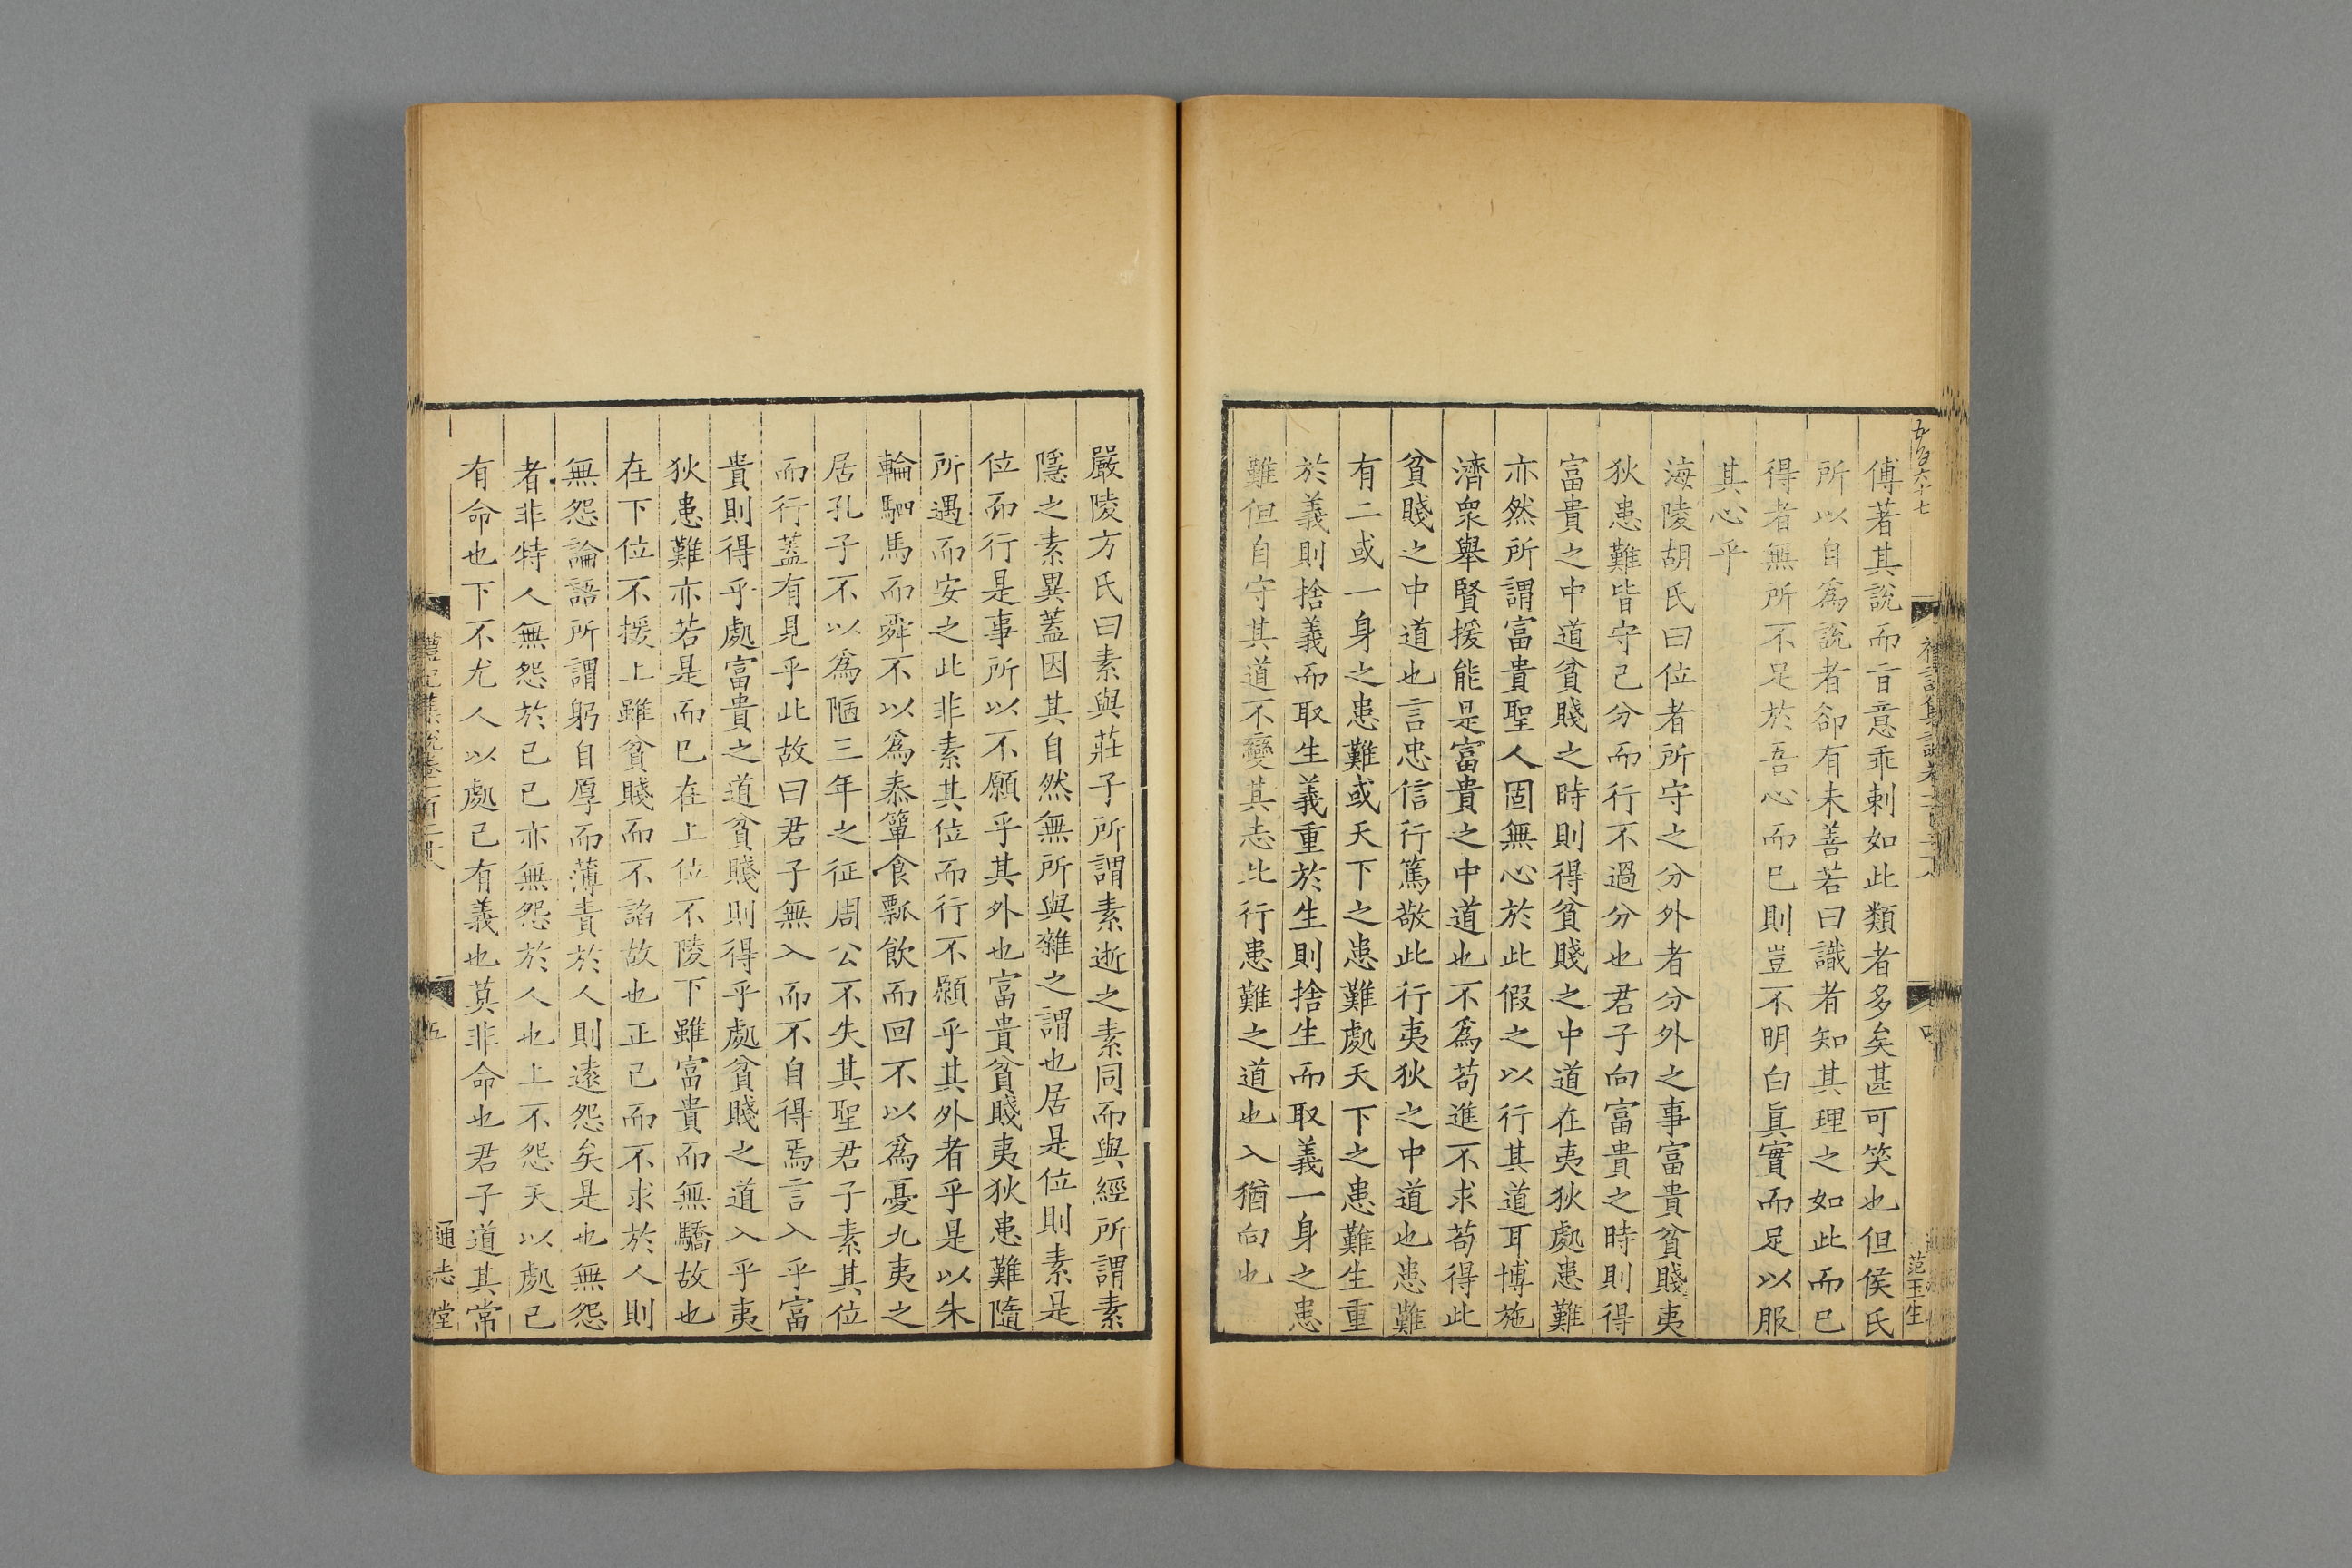 五百六十七
范玉生
傅著其說而㫖意乖剌如此類者多矣甚可笑也但侯氏
所以自爲說者卻有未善若曰識者知其理之如此而已
得者無所不足於吾心而已則豈不明白眞實而足以服
其心乎
海陵胡氏曰位者所守之分外者分外之事富貴貧賤夷
狄患難皆守己分而行不過分也君子向富貴之時則得
富貴之中道貧賤之時則得貧賤之中道在夷狄處患難
亦然所謂富貴聖人固無心於此假之以行其道耳博施
濟衆舉賢援能是富貴之中道也不爲苟進不求苟得此
貧賤之中道也言忠信行篤敬此行夷狄之中道也患難
有二或一身之患難或天下之患難處天下之患難生重
於義則捨義而取生義重於生則捨生而取義一身之患
難但自守其道不變其志此行患難之道也入猶向也
嚴陵方氏曰素與莊子所謂素逝之素同而與經所謂素
隱之素異蓋因其自然無所與雜之謂也居是位則素是
位而行是事所以不願乎其外也富貴貧賤夷狄患難隨
所遇而安之此非素其位而行不願乎其外者乎是以朱
輪駟馬而舜不以爲泰簞食瓢飲而回不以爲憂九夷之
居孔子不以爲陋三年之征周公不失其聖君子素其位
而行蓋有見乎此故曰君子無入而不自得焉言入乎富
貴則得乎處富貴之道貧賤則得乎處貧賤之道入乎夷
狄患難亦若是而已在上位不陵下雖富貴而無驕故也
在下位不援上雖貧賤而不諂故也正己而不求於人則
無怨論語所謂躬自厚而薄責於人則遠怨矣是也無怨
者非特人無怨於己己亦無怨於人也上不怨天以處己
有命也下不尤人以處己有義也莫非命也君子道其常
禮記集說卷一百二十八
五
通志堂